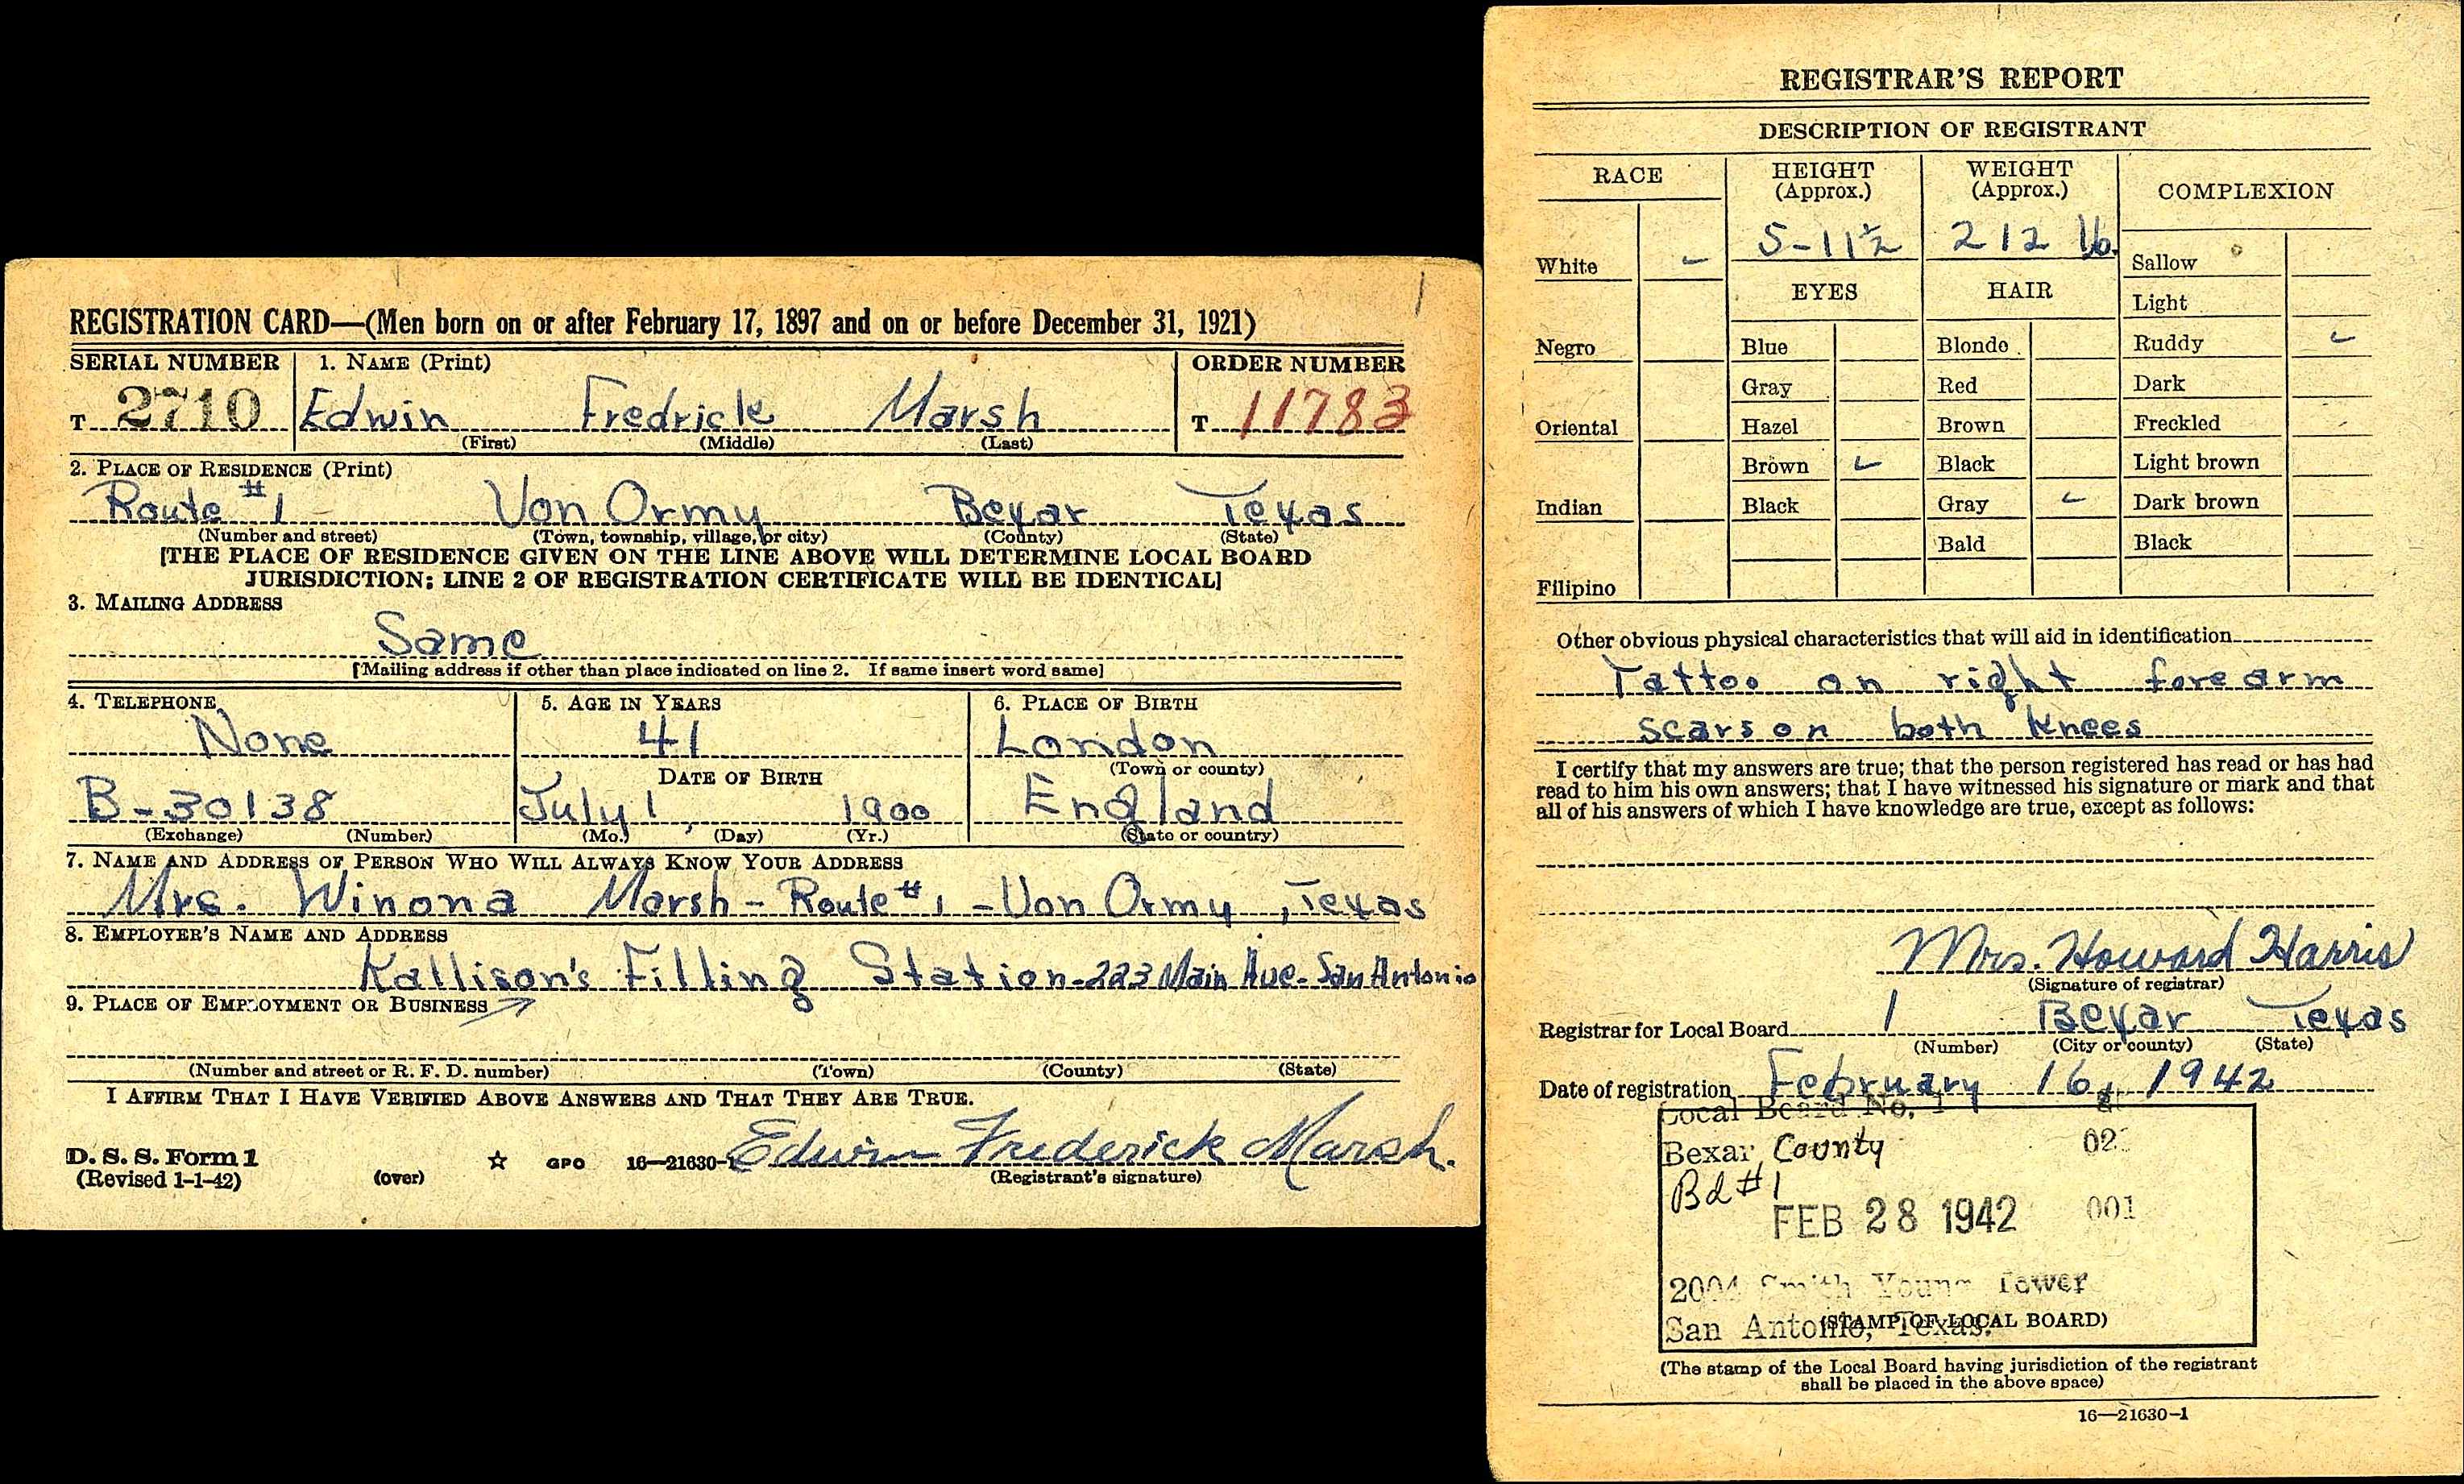 REGISTRATION CARD—(Men born on or after February 17, 1897 and on or before December 31, 1921)
SERIAL NUMBER 1. NAME (Print) ORDER NUMBER
T 2710 Edwin Fredrick Marsh T 11783
(First) (Middle) (Last)
2. PLACE OF RESIDENCE (Print)
Route #1 Von Ormy Bexar Texas
(Number and street) (Town, township, village, or city) (County) (State)
[THE PLACE OF RESIDENCE GIVEN ON THE LINE ABOVE WILL DETERMINE LOCAL BOARD
JURISDICTION; LINE 2 OF REGISTRATION CERTIFICATE WILL BE IDENTICAL]
3. MAILING ADDRESS
Same
[Mailing address if other than place indicated on line 2. If same insert word same]
4. TELEPHONE 5. AGE IN YEARS 6. PLACE OF BIRTH
None 41 London
DATE OF BIRTH (Town or county)
B-30138 July 1, 1900 England
(Exchange) (Number) (Mo.) (Day) (Yr.) (State or country)
7. NAME AND ADDRESS OF PERSON WHO WILL ALWAYS KNOW YOUR ADDRESS
Mrs. Winona Marsh - Route #1 - Von Ormy, Texas
8. EMPLOYER'S NAME AND ADDRESS
Kallison's Filling Station - 223 Main Ave - San Antonio
9. PLACE OF EMPLOYMENT OR BUSINESS
(Number and street or R. F. D. number) (Town) (County) (State)
I AFFIRM THAT I HAVE VERIFIED ABOVE ANSWERS AND THAT THEY ARE TRUE.
Edwin Frederick Marsh.
D. S. S. Form 1
(Revised 1-1-42) (over) ☆ GPO 16—21630-1 (Registrant's signature)
REGISTRAR'S REPORT
DESCRIPTION OF REGISTRANT
RACE HEIGHT (Approx.) WEIGHT (Approx.) COMPLEXION
5-11½ 212 lb.
White ✓ Sallow
EYES HAIR
Light
Negro Blue Blonde Ruddy ✓
Gray Red Dark
Oriental Hazel Brown Freckled
Brown ✓ Black Light brown
Indian Black Gray ✓ Dark brown
Bald Black
Filipino
Other obvious physical characteristics that will aid in identification
Tattoo on right forearm
scars on both knees
I certify that my answers are true; that the person registered has read or has had
read to him his own answers; that I have witnessed his signature or mark and that
all of his answers of which I have knowledge are true, except as follows:
Mrs. Howard Harris
(Signature of registrar)
Registrar for Local Board 1 Bexar Texas
(Number) (City or county) (State)
Date of registration February 16, 1942
Local Board No. 1
Bexar County 02
Bd #1
FEB 28 1942 001
2004 Smith Young Tower
San Antonio, Texas.
(STAMP OF LOCAL BOARD)
(The stamp of the Local Board having jurisdiction of the registrant
shall be placed in the above space)
16—21630-1